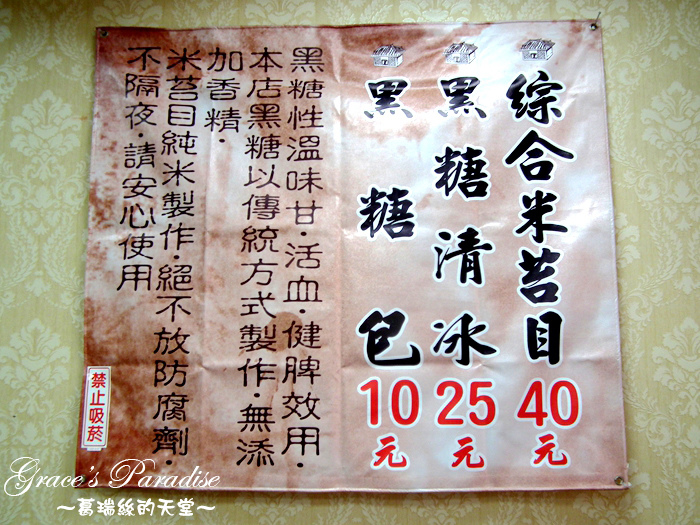 綜合米苔目40元
黑糖清冰25元
黑糖包10元
黑糖性溫味甘·活血·健脾效用·
本店黑糖以傳統方式製作·無添
加香精·
米苔目純米製作·絕不放防腐劑·
不隔夜·請安心使用
禁止吸菸
Grace's Paradise
～葛瑞絲的天堂～